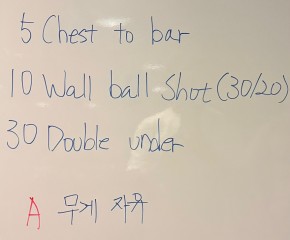 5 Chest to bar
10 Wall ball shot (30/20)
30 Double under
A 무게 자유